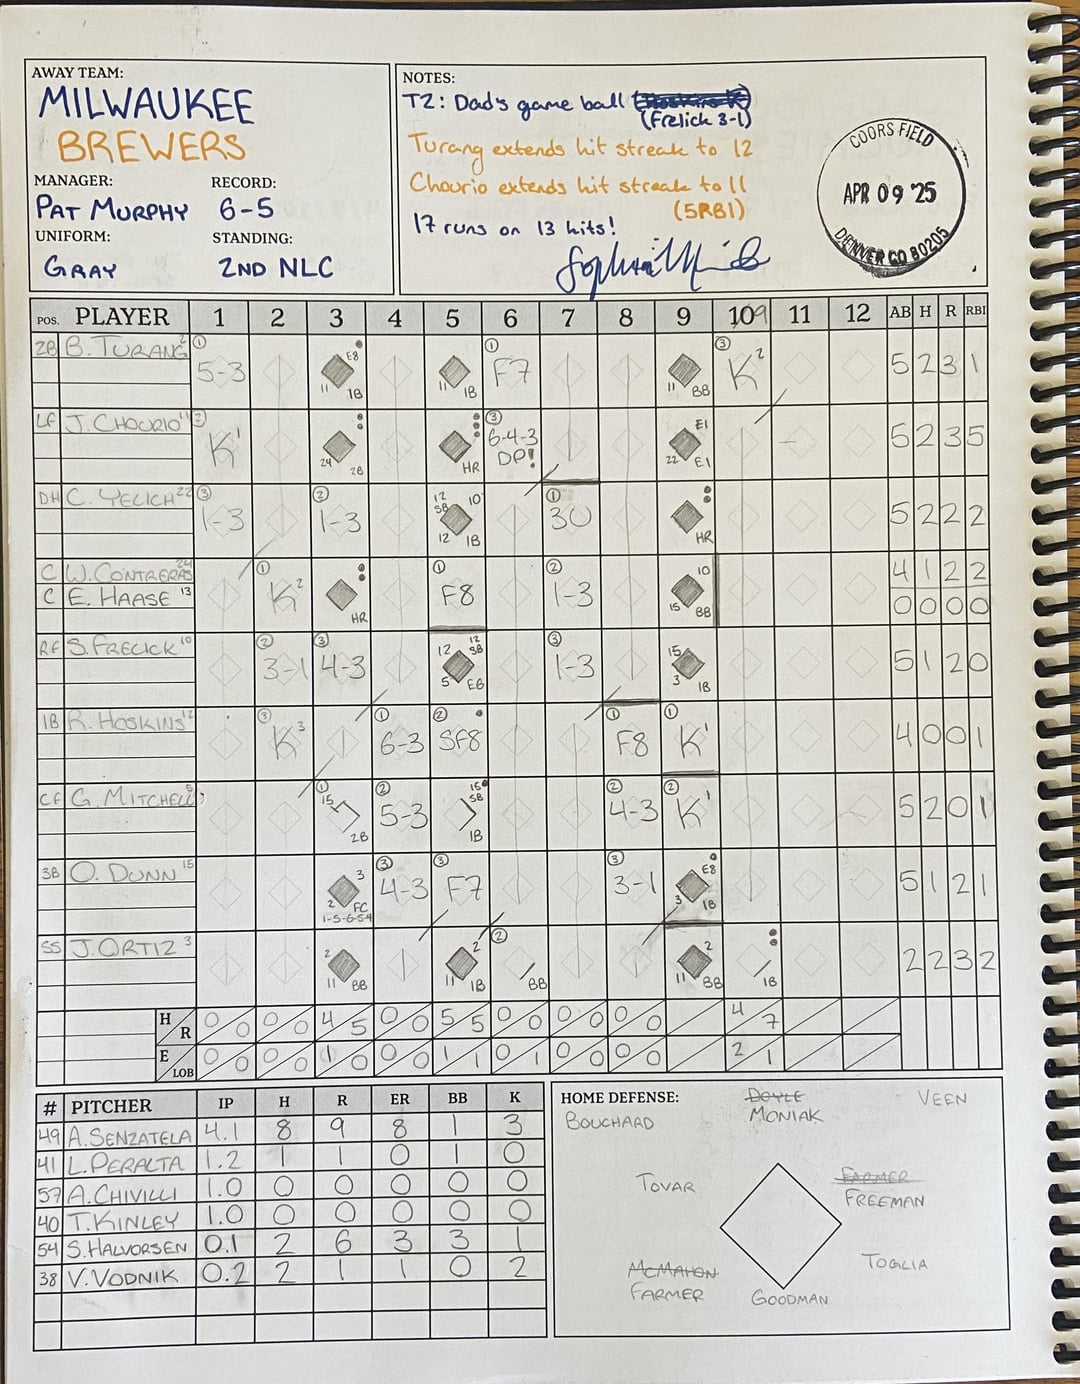 AWAY TEAM:
MILWAUKEE
BREWERS
MANAGER: RECORD:
PAT MURPHY 6-5
UNIFORM: STANDING:
GRAY 2ND NLC
NOTES:
T2: Dad's game ball
(Frelick 3-1)
Turang extends hit streak to 12
Chourio extends hit streak to 11
(5RBI)
17 runs on 13 hits!
COORS FIELD
APR 09 '25
DENVER CO 80205
POS. PLAYER 1 2 3 4 5 6 7 8 9 10 9 11 12 AB H R RBI
2B B. TURANG 2 ① 5-3 E8 11 1B 11 1B ① F7 11 BB ③ K 2 5 2 3 1
LF J. CHOURIO 11 ② K 1 24 2B HR ③ 6-4-3 DP! E1 22 E1 5 2 3 5
DH C. YELICH 22 ③ 1-3 ② 1-3 12 SB 10 12 1B ① 3U HR 5 2 2 2
C W. CONTRERAS 24 ① K 2 HR ① F8 ② 1-3 10 15 BB 4 1 2 2
C E. HAASE 13 0 0 0 0
RF S. FRELICK 10 ② 3-1 ③ 4-3 12 12 SB 5 E6 ③ 1-3 15 3 1B 5 1 2 0
1B R. HOSKINS 12 ③ K 3 ① 6-3 ② SF8 ① F8 ① K 1 4 0 0 1
CF G. MITCHELL 5 ① 15 2B ② 5-3 15 SB 1B ② 4-3 ② K 1 5 2 0 1
3B O. DUNN 15 3 2 FC 1-5-6-5-4 ③ 4-3 ③ F7 ③ 3-1 E8 3 1B 5 1 2 1
SS J. ORTIZ 3 2 11 BB 2 11 1B ② BB 2 11 BB 1B 2 2 3 2
H R 0 0 0 0 4 5 0 0 5 5 0 0 0 0 0 0 4 7
E LOB 0 0 0 0 1 0 0 0 1 1 0 1 0 0 0 0 2 1
# PITCHER IP H R ER BB K
49 A. SENZATELA 4.1 8 9 8 1 3
41 L. PERALTA 1.2 1 1 0 1 0
57 A. CHIVILLI 1.0 0 0 0 0 0
40 T. KINLEY 1.0 0 0 0 0 0
54 S. HALVORSEN 0.1 2 6 3 3 1
38 V. VODNIK 0.2 2 1 1 0 2
HOME DEFENSE:
DOYLE VEEN
BOUCHARD MONIAK
TOVAR FARMER
FREEMAN
MCMAHON TOGLIA
FARMER GOODMAN